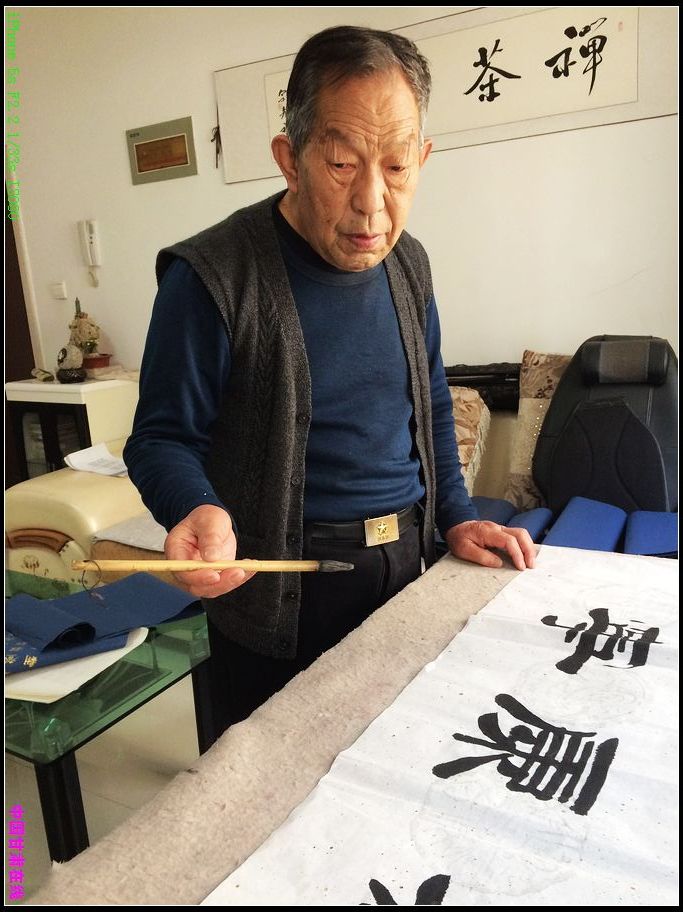 iPhone 5s F2.2 1/33s ISO50
禅茶
康寧
中国甘肃在线